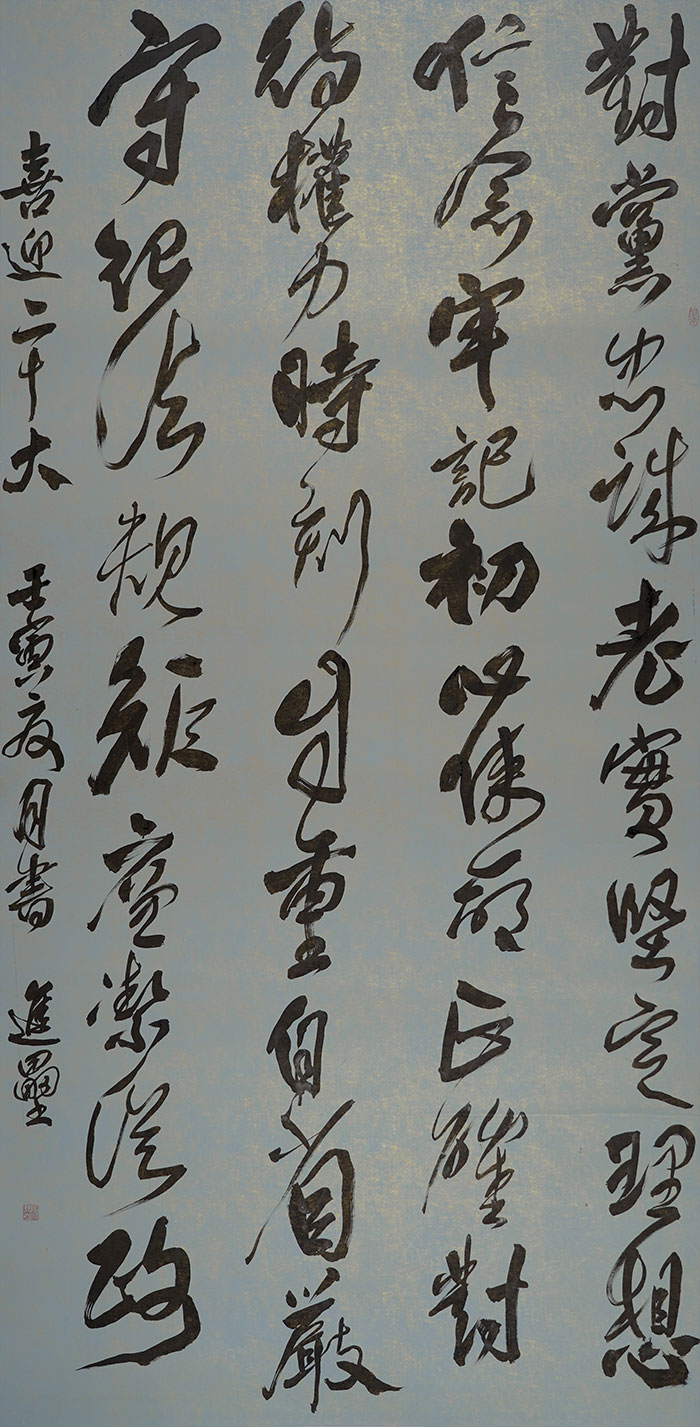 對黨忠誠老實堅定理想
信念牢記初心使命正確對
待權力時刻自重自省嚴
守紀法規矩廉潔從政
喜迎二十大 壬寅夏月書 進壘